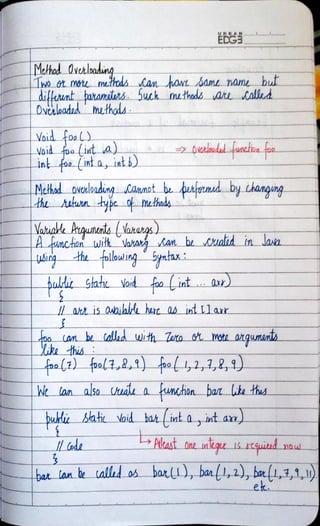 URBAN
EDGE
Method Overloading
Two or more methods can have same name but
different parameters. Such methods are called
Overloaded methods.
Void foo()
Void foo (int a) => Overloaded function foo
int foo (int a, int b)
Method overloading cannot be performed by changing
the return type of methods
Variable Arguments (Varargs)
A function with vararg can be created in Java
using the following Syntax:
public static void foo (int ... arr)
{
// arr is available here as int [] arr
}
foo can be called with Zero or more arguments
like this :
foo(7) foo(7,8,9) foo(1,2,7,8,9)
We can also create a function bar like this
public static void bar (int a, int arr)
{
// Code ↳ Atleast one integer is required now
}
bar can be called as bar(1), bar(1,2), bar(1,7,9,11)
etc.